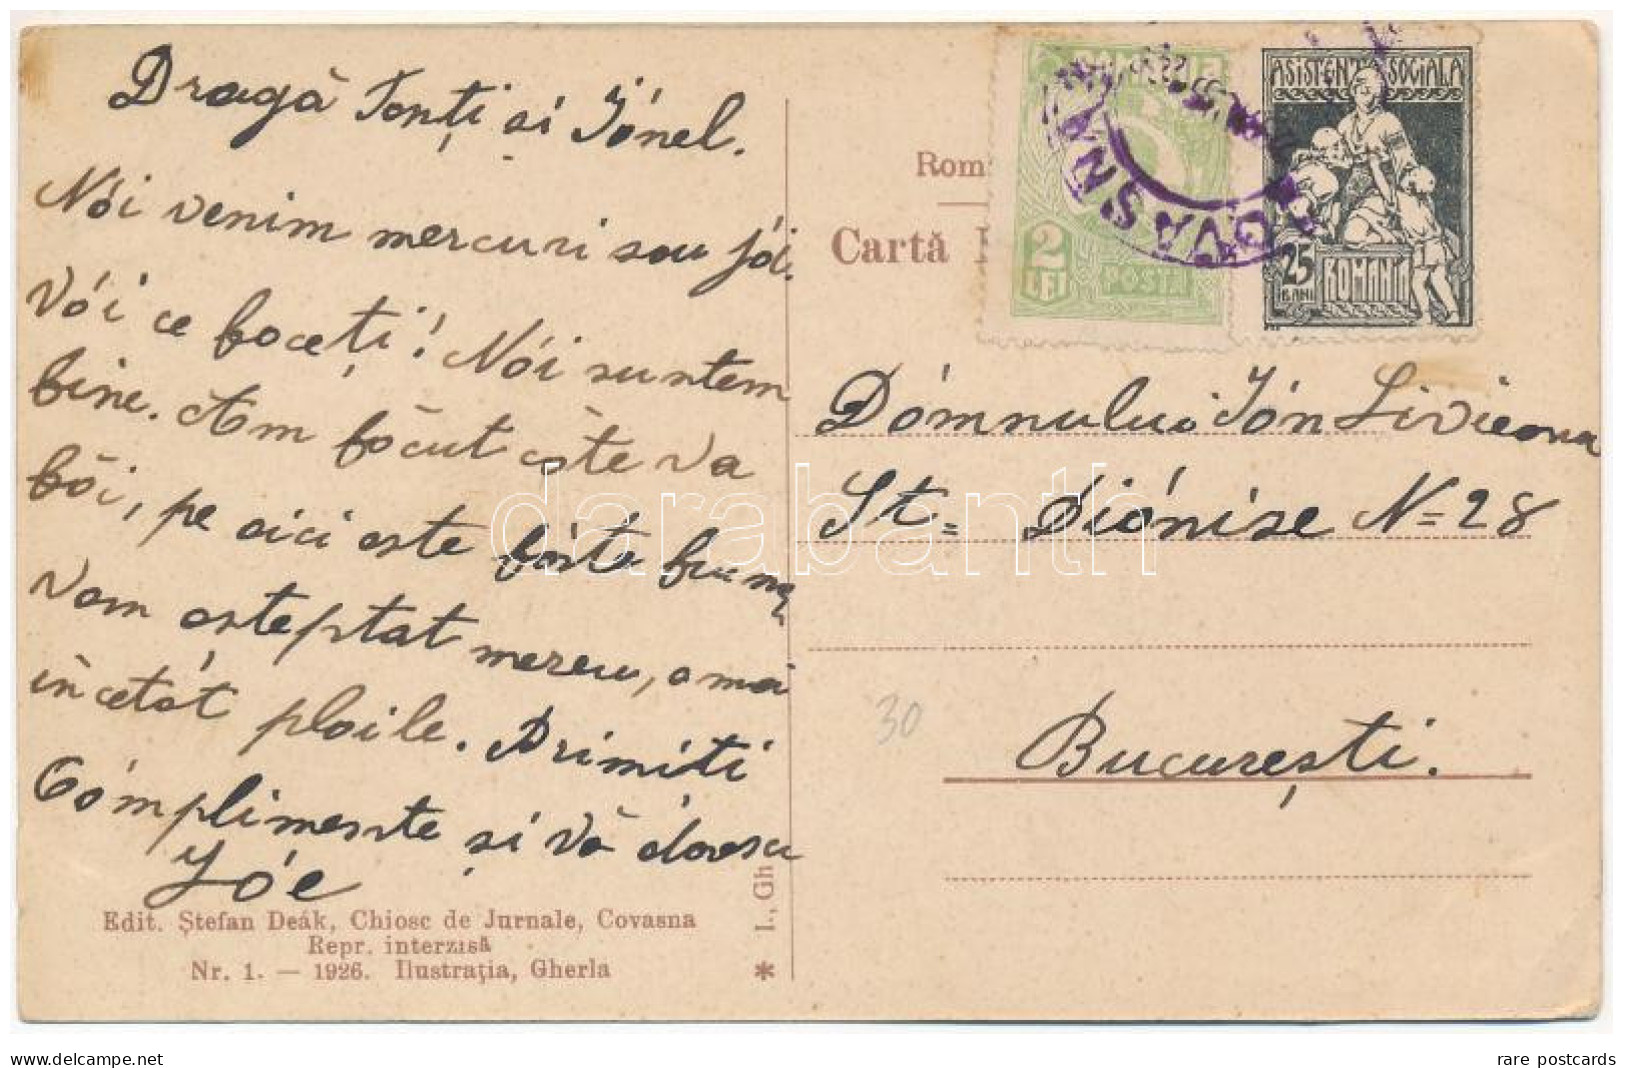 Dragă Tonți si Iónel.
Nói venim mercuri sau joi.
Vói ce faceți! Nói suntem
bine. Am făcut căte va
băi, pe aici este fórte fruma
Vom asteptat mereu, a mai
incetat ploile. Primiti
Cómplimente și Vă doresc
Jóe
Edit. Ștefan Deák, Chiosc de Jurnale, Covasna
Repr. interzisă
Nr. 1. — 1926. Ilustrația, Gherla
* I., Gh
Rom
Cartă
2
LEI
POSTA
COVASNA
ASISTENTA SOCIALA
25
BANI
ROMANIA
Dómnului Ión Livieanu
St= Diónise N=28
30
București.
darabanth
www.delcampe.net
rare postcards